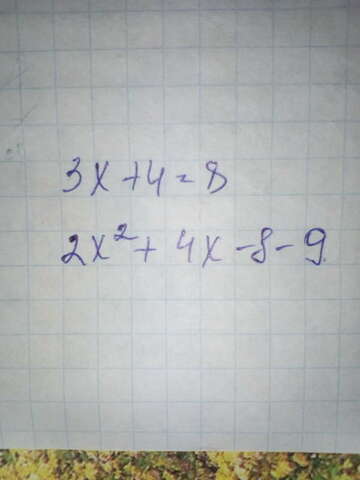 3x+4=8
2x²+4x-8-9